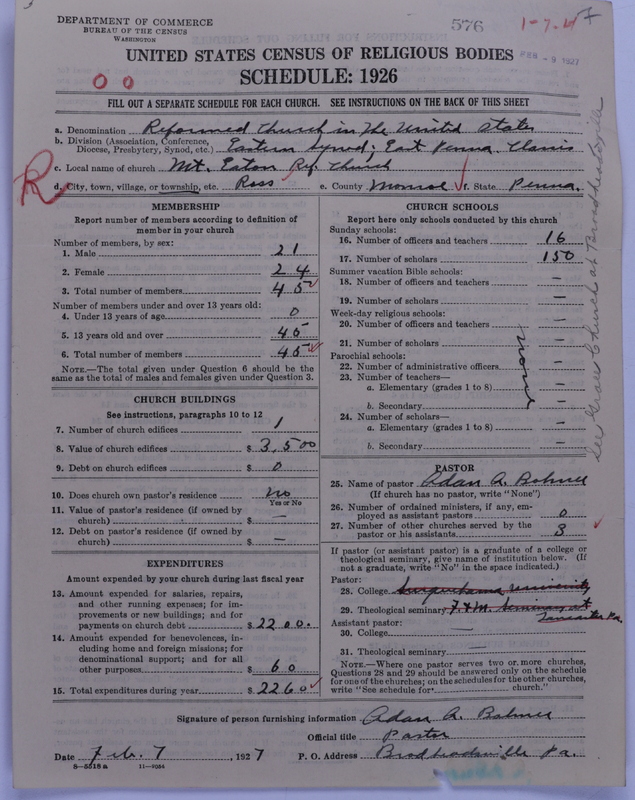 DEPARTMENT OF COMMERCE
BUREAU OF THE CENSUS
WASHINGTON
576
1-7-4
FEB -9 1927
UNITED STATES CENSUS OF RELIGIOUS BODIES
SCHEDULE: 1926
0 0
FILL OUT A SEPARATE SCHEDULE FOR EACH CHURCH. SEE INSTRUCTIONS ON THE BACK OF THIS SHEET
a. Denomination Reformed Church in The United States
b. Division (Association, Conference, Diocese, Presbytery, Synod, etc.) Eastern Synod; East Penna. Classis
c. Local name of church Mt. Eaton Ref. Church
R
d. City, town, village, or township, etc. Ross e. County Monroe f. State Penna.
MEMBERSHIP
Report number of members according to definition of
member in your church
Number of members, by sex:
1. Male 21
2. Female 24
3. Total number of members 45
Number of members under and over 13 years old:
4. Under 13 years of age 0
5. 13 years old and over 45
6. Total number of members 45
NOTE.—The total given under Question 6 should be
the same as the total of males and females given under Question 3.
CHURCH BUILDINGS
See instructions, paragraphs 10 to 12
7. Number of church edifices 1
8. Value of church edifices $ 3,500
9. Debt on church edifices $ 0
10. Does church own pastor's residence no
Yes or No
11. Value of pastor's residence (if owned by
church) $ —
12. Debt on pastor's residence (if owned by
church) $ —
EXPENDITURES
Amount expended by your church during last fiscal year
13. Amount expended for salaries, repairs,
and other running expenses; for im-
provements or new buildings; and for
payments on church debt $ 2200.
14. Amount expended for benevolences, in-
cluding home and foreign missions; for
denominational support; and for all
other purposes $ 60
15. Total expenditures during year $ 2260
CHURCH SCHOOLS
Report here only schools conducted by this church
Sunday schools:
16. Number of officers and teachers 16
17. Number of scholars 150
Summer vacation Bible schools:
18. Number of officers and teachers —
19. Number of scholars —
Week-day religious schools:
20. Number of officers and teachers —
21. Number of scholars —
Parochial schools:
22. Number of administrative officers —
23. Number of teachers—
a. Elementary (grades 1 to 8) —
b. Secondary —
24. Number of scholars—
a. Elementary (grades 1 to 8) —
b. Secondary —
none
See Grace Church at Brodheadsville
PASTOR
25. Name of pastor Adan A. Bohner
(If church has no pastor, write "None")
26. Number of ordained ministers, if any, em-
ployed as assistant pastors 0
27. Number of other churches served by the
pastor or his assistants 3
If pastor (or assistant pastor) is a graduate of a college or
theological seminary, give name of institution below. (If
not a graduate, write "No" in the space indicated.)
Pastor:
28. College Susquehanna University
29. Theological seminary F. & M. Seminary at
Lancaster Pa.
Assistant pastor:
30. College —
31. Theological seminary —
NOTE.—Where one pastor serves two or more churches,
Questions 28 and 29 should be answered only on the schedule
for one of the churches; on the schedules for the other churches,
write "See schedule for church."
Signature of person furnishing information Adan A. Bohner
Official title Pastor
Date Feb. 7, 1927 P. O. Address Brodheadsville Pa.
8—5518 a 11—9054